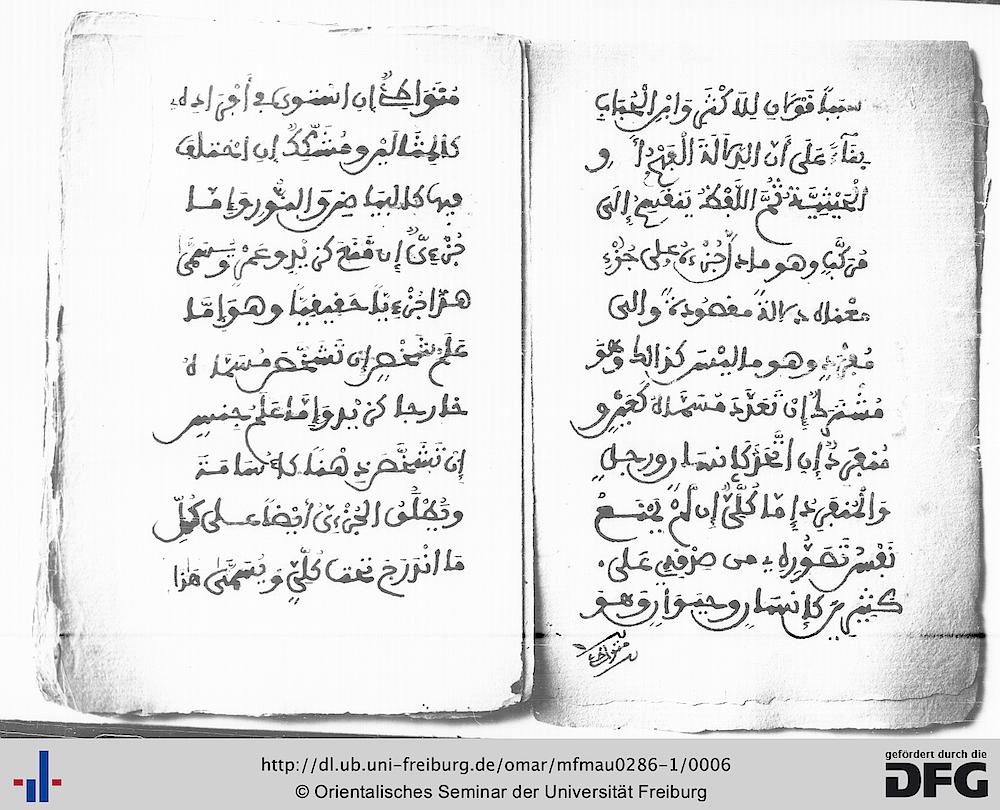 سببا فقولان للأكثر وابن الحباب
بناء على أن الدلالة الفهم أو
الحيثية ثم اللفظ ينقسم إلى
مركب وهو ما دل جزءه على جزء
معناه دلالة مقصودة وإلى
مفرد وهو ما ليس كذلك وهو
مشترك إن تعدد مسماه كعين و
منفرد إن اتحد كإنسان ورجل
والمنفرد إما كلي إن لم يمنع
نفس تصوره من صدقه على
كثيرين كإنسان وحيوان وهو
متواطئ
متواطئ إن استوى في أفراده
كالمثالين ومشكك إن اختلف
فيها كالبياض والنور وإما
جزءي إن منع كزيد وعمر ويسمى
هذا جزءيا حقيقيا وهو إما
علم شخص إن تشخص مسماه
خارجا كزيد وإما علم جنس
إن تشخص ذهنا كأسامة
ويطلق الجزءي أيضا على كل
ما اندرج تحت كلي ويسمى هذا
http://dl.ub.uni-freiburg.de/omar/mfmau0286-1/0006
© Orientalisches Seminar der Universität Freiburg
gefördert durch die
DFG